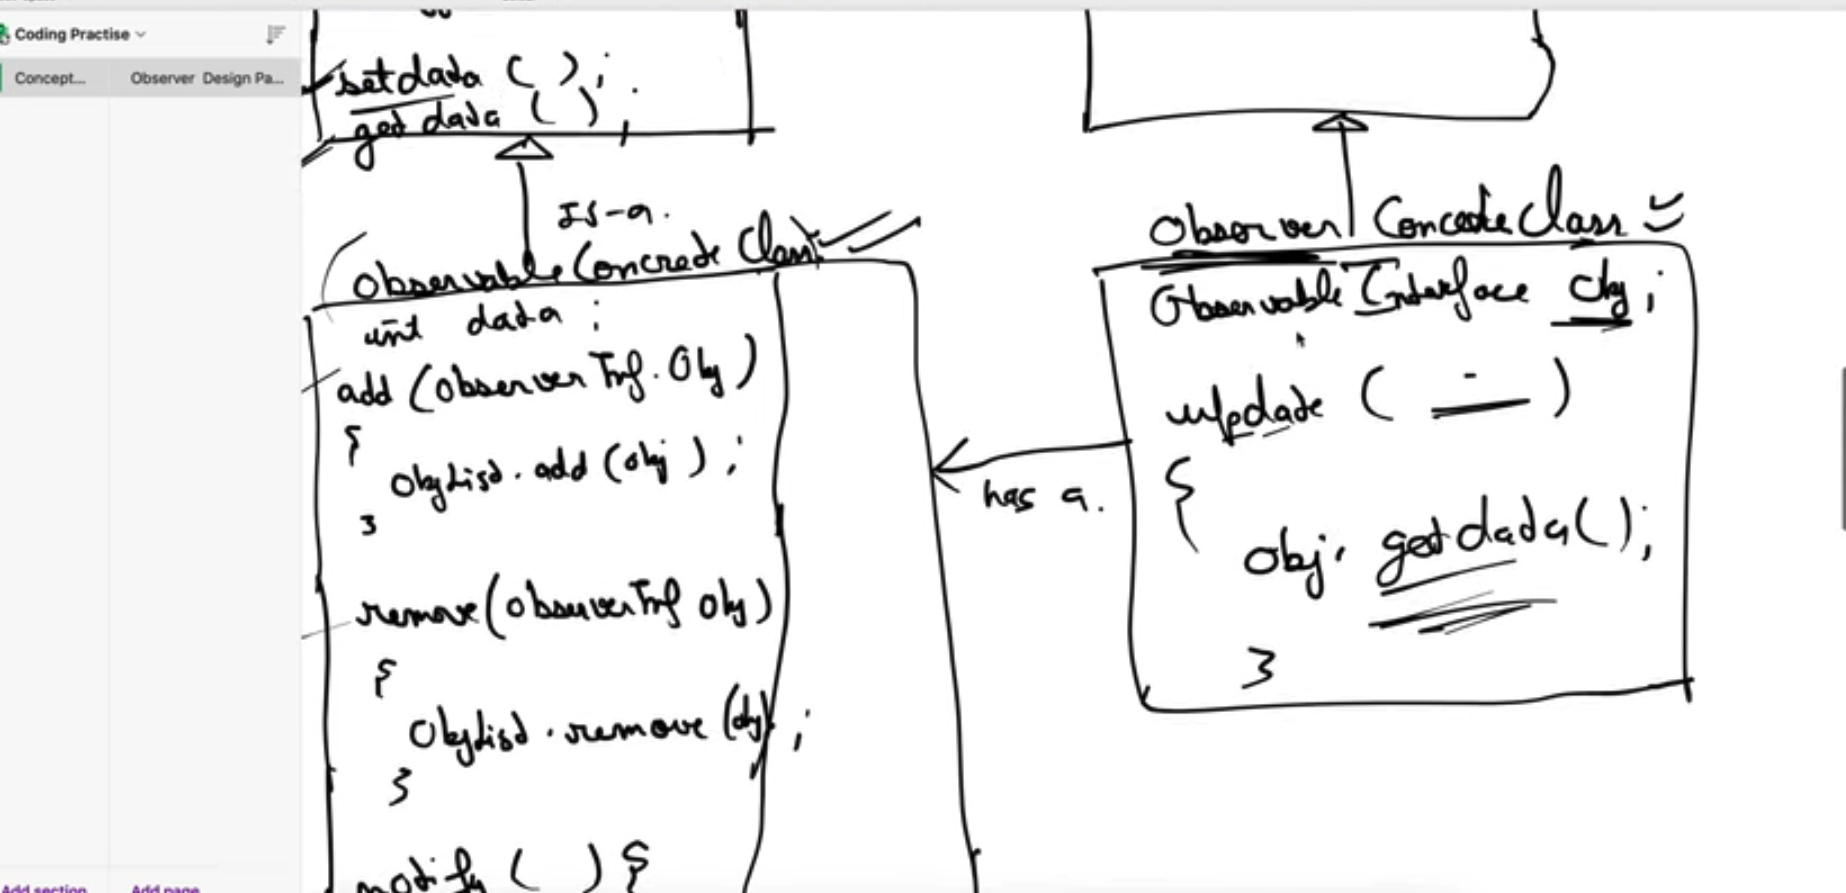 Coding Practise
Concept...
Observer Design Pa...
setdata ( );
getdata ( );
IS-a.
Observable Concrete Class
int data ;
add (Observer Inf. Obj)
{
ObjList.add (obj) ;
}
remove (Observer Inf Obj)
{
ObjList.remove (obj) ;
}
notify ( ) {
has a.
Observer Concrete Class
Observable Interface obj;
update ( )
{
obj. getdata();
}
Add section
Add page